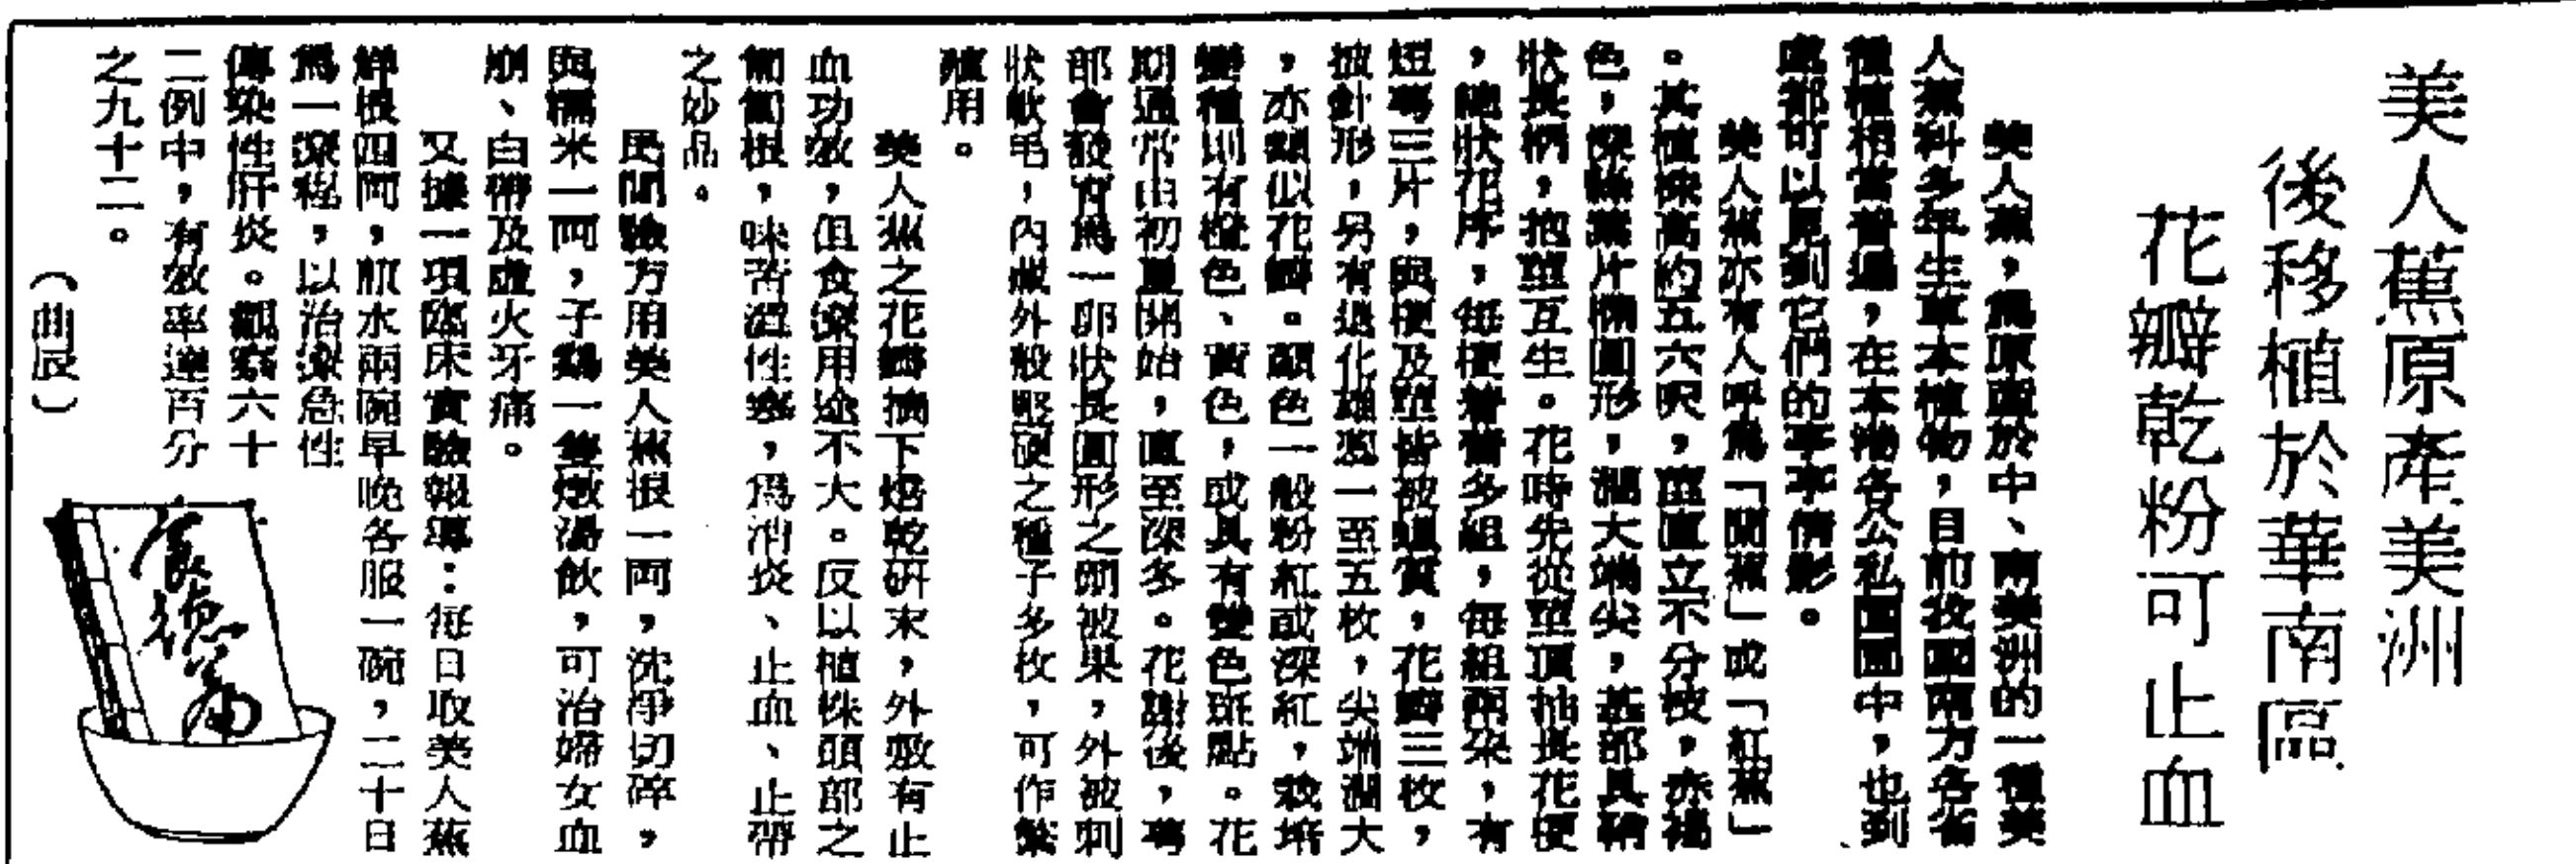 美人蕉原產美洲
後移植於華南區
花瓣乾粉可止血
美人蕉，爲原產於中、南美洲的一種美
人蕉科多年生草本植物，目前我國南方各省
種植相當普遍，在本港各公私園圃中，也到
處都可以見到它們的亭亭倩影。
美人蕉亦有人呼爲「蘭蕉」或「紅蕉」
。其植株高約五六呎，莖直立不分枝，赤褐
色，深綠葉片橢圓形，濶大端尖，基部具鞘
狀長柄，抱莖互生。花時先從莖頂抽長花梗
，總狀花序，每梗着蕾多組，每組兩朵，有
燈萼三片，與梗及莖皆被蠟質，花瓣三枚，
披針形，另有退化雄蕊一至五枚，尖端濶大
，亦類似花瓣。顏色一般粉紅或深紅，栽培
變種則有橙色、黃色，或具有雙色斑點。花
期通常由初夏開始，直至深冬。花謝後，萼
部會發育爲一卵狀長圓形之朔被果，外被刺
狀軟毛，內藏外殼堅硬之種子多枚，可作繁
殖用。
美人蕉之花瓣摘下焙乾研末，外敷有止
血功效，但食療用途不大。反以植株頭部之
匍匐根，味苦澀性寒，爲消炎、止血、止帶
之妙品。
民間驗方用美人蕉根一両，洗淨切碎，
與糯米一両，子鷄一隻燉湯飲，可治婦女血
崩、白帶及虛火牙痛。
又據一項臨床實驗報導：每日取美人蕉
鮮根四両，煎水兩碗早晚各服一碗，二十日
爲一療程，以治療急性
傳染性肝炎。觀察六十
二例中，有效率達百分
之九十二。
（曲辰）
食德篇